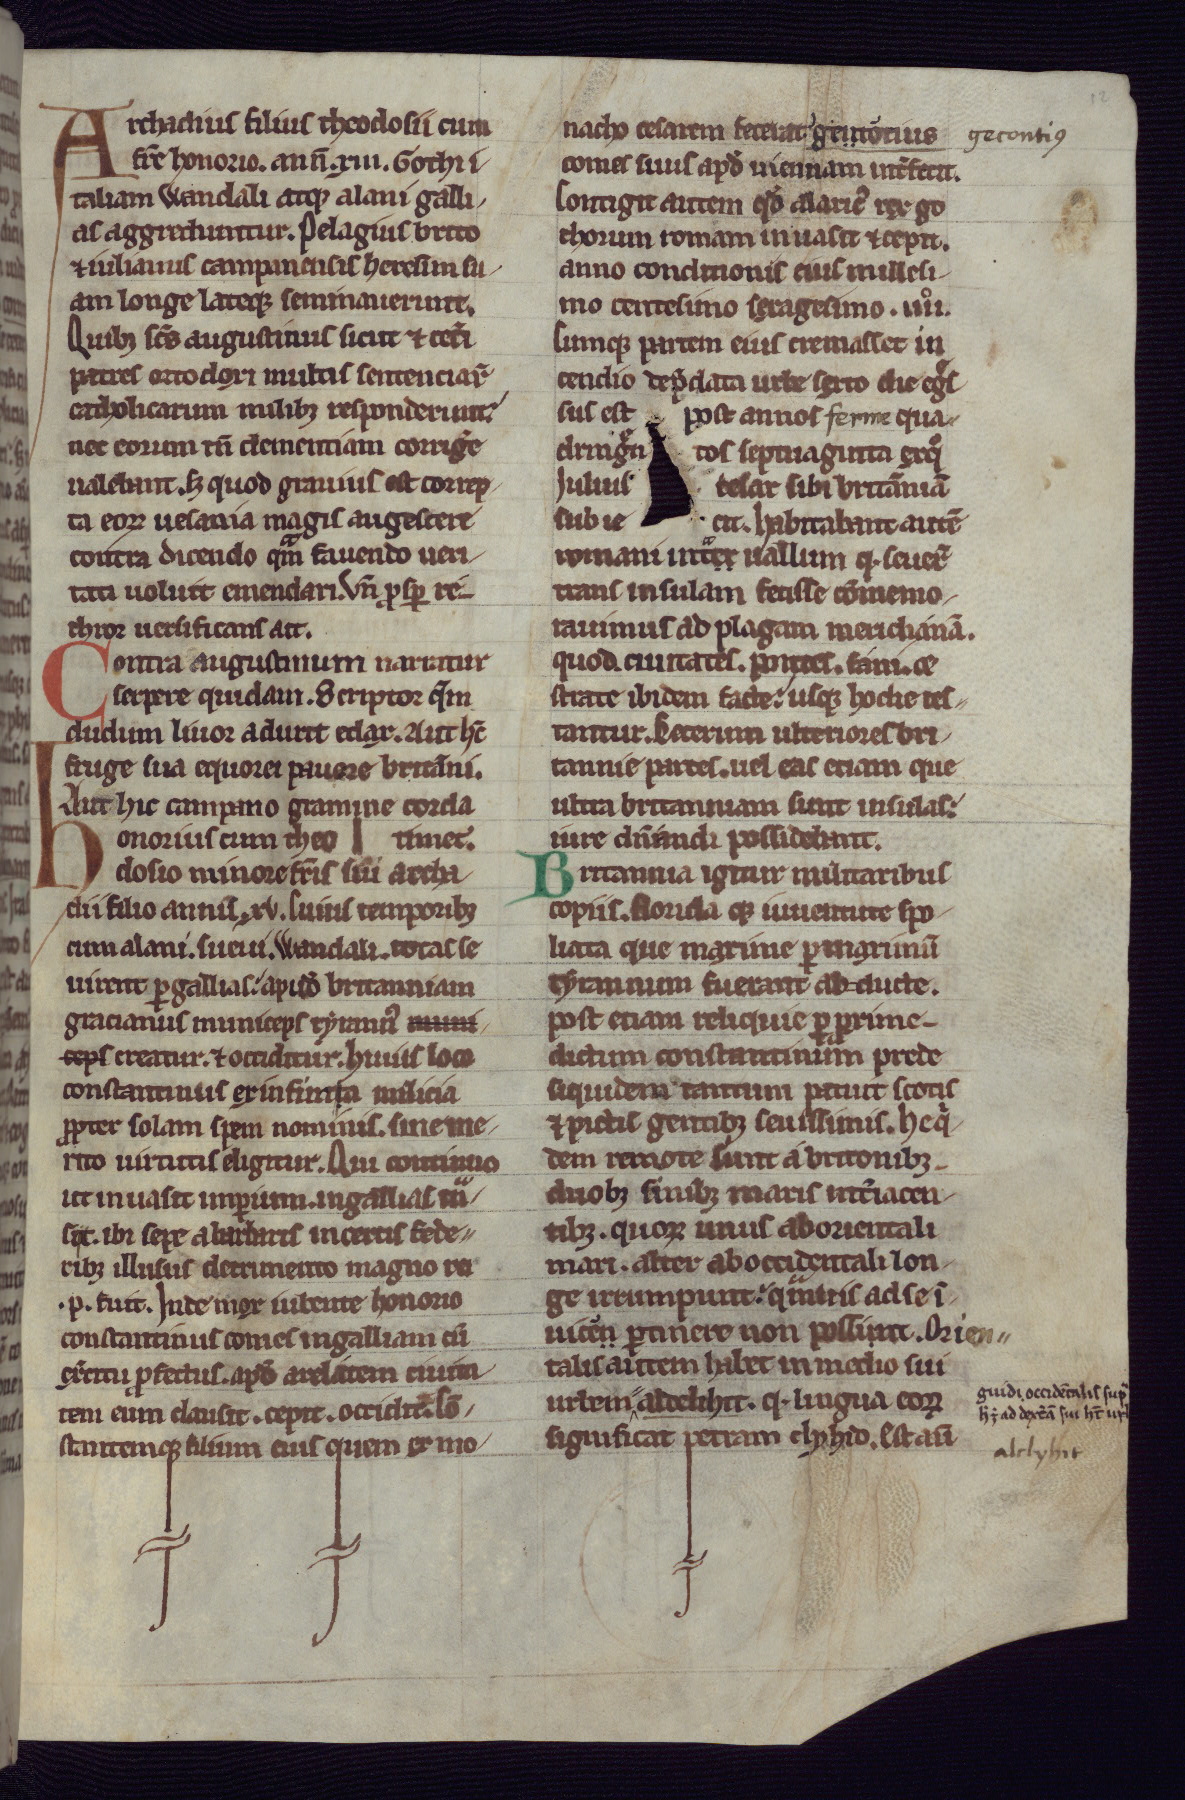 Archadius filius theodosii cum
fr̄e honorio. ann̄. xiii. Gothi i
taliam Wandali atq; alani galli-
as aggrediuntur. Pelagius brito
⁊ iulianus campanensis heresim su-
am longe lateq; seminauerunt.
Quib; sc̄s augustinus sicut ⁊ cet̄i
patres ortodoxi multis sentenciaꝝ
catholicarum milib; responderunt:
nec eorum tn̄ dementiam corrige
ualebant. Sꝫ quod grauius est correp-
ta eoꝝ uesania magis augescere
contra dicendo qᵃm fauendo ueri-
tati uoluit emendari. Vn̄ ꝓsꝑ re-
thor uersificans ait.
Contra augustinum narratur
serpere quidam. Scriptor qᵃm
dudum liuor adurit edax. Aut hc̄
fruge sua equorei pauere britāni.
Aut hic campano gramine corda
timet.
honorius cum theo
dosio minore fr̄is sui archa
dii filio annis. xv. Cuius temporib;
cum alani. sueui. Wandali. totas se
uirent ꝑ gallias: apud britanniam
gracianus municeps tyrann᾽ muni-
ceps creatur. ⁊ occiditur. huius loco
constantinus ex infima milicia
ꝓpter solam spem nominis. sine me-
rito uirtutis eligitur. Qui continuo
ut inuasit imꝑium. in gallias tnᵃ-
siit. ibi sepe a barbaris incertis fede-
rib; illusus detrimento magno rei
.p. fuit. Inde mox iubente honorio
constantinus comes in galliam cū
exercitu ꝓfectus. apud arelatem ciuita
tem eum clausit. cepit. occidit. Cō-
stantemq; filium eius quem ex mo-
nacho cesarem fecerat gerontius
comes suus apud uiennam int̄fecit.
Contigit autem qd̄ alaric᾽ rex go
thorum romam inuasit ⁊ cepit.
anno conditionis eius millesi-
mo centesimo sexagesimo. iiii.
Cumq; partem eius cremasset in
cendio depᵉdata urbe sexto die eg̃s
sus est post annos ferme qua-
dringen tos septuaginta ex qᵒ
Iulius cesar sibi britāniā
subie cit. habitabant autē
romani intᵃ uallum q. seuer᾽
trans insulam fecisse cōmemo-
rauimus ad plagam meridianā.
quod ciuitates. pontes. fani. ce
strate ibidem facte: usq; hodie tes-
tantur. Ceterum ulteriores bri-
tannie partes. uel eas etiam que
ultra britanniam sunt insulas:
iure dn̄andi possidebant.
Britannia igitur militaribus
copiis. florida q; iuuentute spo
liata que maxime ꝑ maximū
tyrannum fuerant ab-ducte.
post etiam reliquie ꝑ prime-
dictum constantinum prede
siquidem tantum patuit scotis
⁊ pictis gentib; seuissimis. hec qⁱ-
dem remote sunt a britonib;
duob; sinib; maris int̄iacen-
tib;. quoꝝ unus ab orientali
mari. alter ab occidentali lon-
ge irrumpunt: qᵃmuis ad se ī-
uicem ꝑtinere non possint. Orien-
talis autem habet in medio sui
urbem aldclihit. q. lingua eoꝝ
significat petram clyhid. Est au̅
gerontiꝯ
guidi occidētalis supᵃ
h; ad dextā sui ht̄ urbē
alclyhit
12